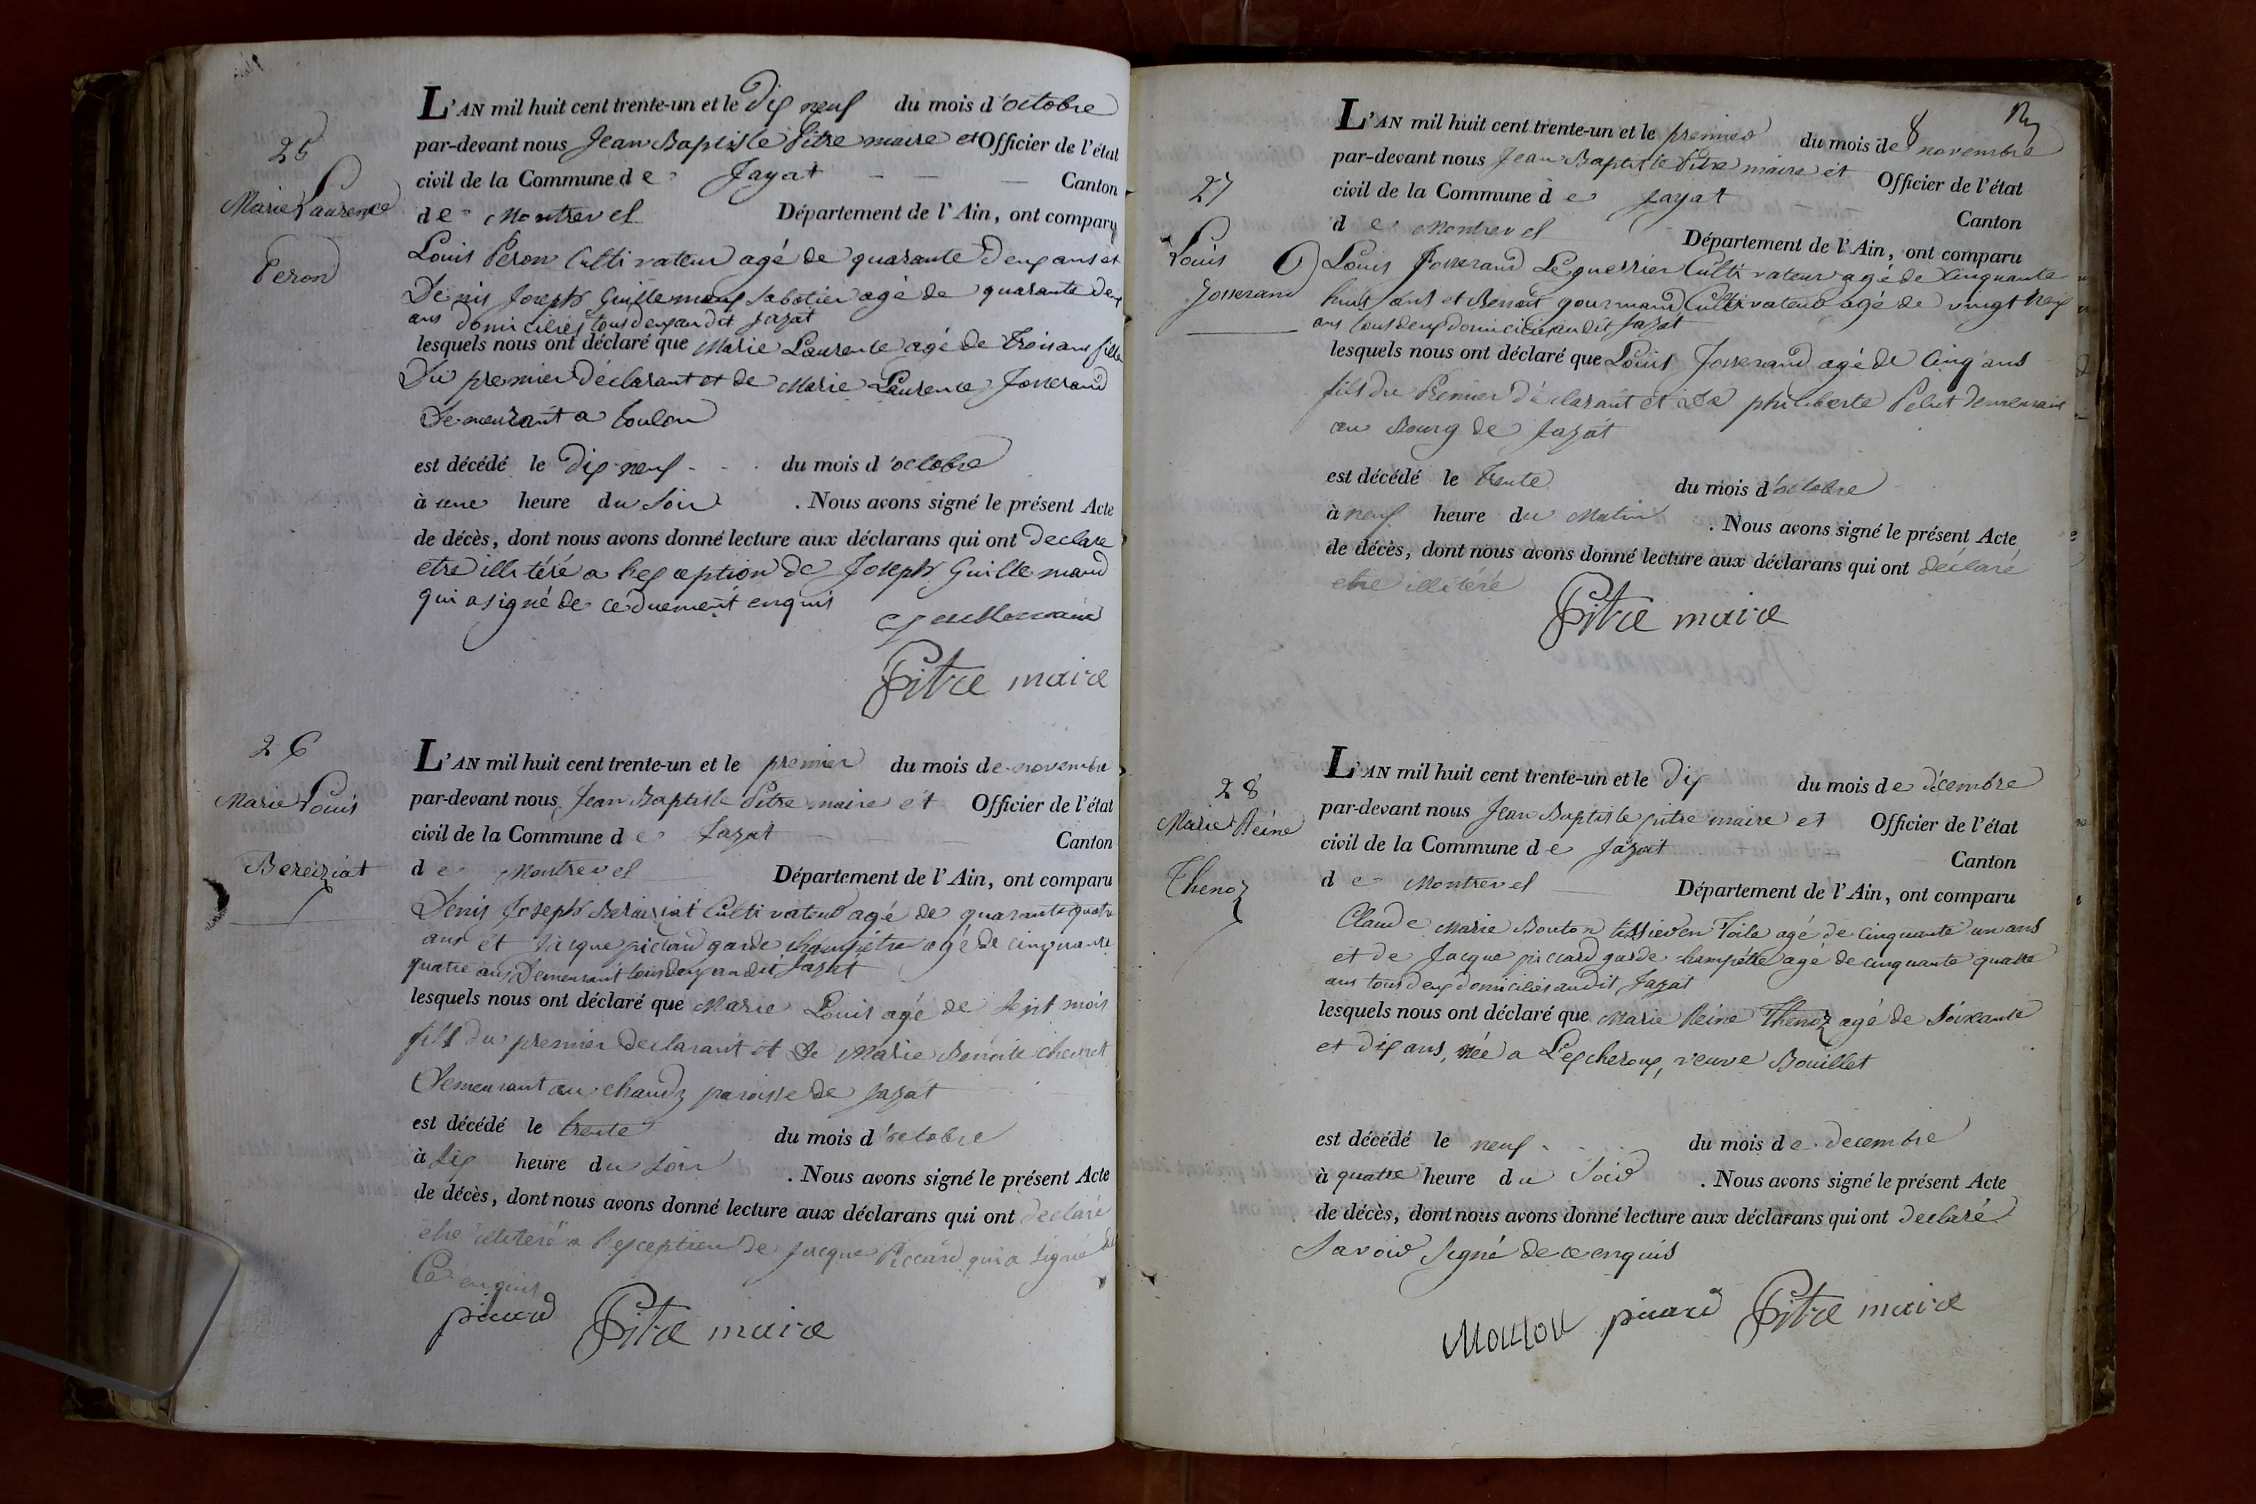 25
Marie Laurence
Peron
L'AN mil huit cent trente-un et le dix neuf du mois d'octobre
par-devant nous Jean Baptiste Pitre maire et Officier de l'état
civil de la Commune de Jayat Canton
de Montrevel Département de l'Ain, ont comparu
Louis Peron Cultivateur agé de quarante deux ans et
Denis Joseph Guillemaux sabotier agé de quarante deux
ans domiciliés tous deux au dit Jayat
lesquels nous ont déclaré que Marie Laurence agé de trois ans fille
Du premier déclarant et de Marie Laurence Josserand
Demeurant a Toulon
est décédé le dix neuf du mois d'octobre
à une heure du Soir . Nous avons signé le présent Acte
de décès, dont nous avons donné lecture aux déclarans qui ont declare
etre illitéré a l'exception de Joseph Guillemaud
qui a signé de ce duement enquis
Guillemaud
Pitre maire
26
Marie Louis
Bereiziat
L'AN mil huit cent trente-un et le premier du mois de novembre
par-devant nous Jean Baptiste Pitre maire et Officier de l'état
civil de la Commune de Jayat Canton
de Montrevel Département de l'Ain, ont comparu
Denis Joseph Bereiziat Cultivateur agé de quarante quatre
ans et Jacque piccard garde champetre agé de cinquante
quatre ans Demeurant tous deux au dit Jayat
lesquels nous ont déclaré que Marie Louis agé de Sept mois
fils du premier declarant et de Marie Benoite chevret
Demeurant au chaudz paroisse de Jayat
est décédé le trente du mois d'octobre
à six heure du soir . Nous avons signé le présent Acte
de décès, dont nous avons donné lecture aux déclarans qui ont declaré
etre illitéré a l'exception de Jacque Piccard qui a signé de
Ce enquis
picard Pitre maire
8
27
Louis
Josserand
L'AN mil huit cent trente-un et le premier du mois de novembre
par-devant nous Jean Baptiste Pitre maire et Officier de l'état
civil de la Commune de Jayat Canton
de Montrevel Département de l'Ain, ont comparu
Louis Josserand Leguerrier Cultivateur agé de Cinquante
huit ans et Benoit gourmand Cultivateur agé de vingt neuf
ans tous deux domicilié au dit Jayat
lesquels nous ont déclaré que Louis Josserand agé de Cinq ans
fils du Premier déclarant et de philiberte Pelut demeurant
au Bourg de Jayat
est décédé le trente du mois d'octobre
à neuf heure du Matin . Nous avons signé le présent Acte
de décès, dont nous avons donné lecture aux déclarans qui ont déclaré
etre illitéré
Pitre maire
28
Marie Reine
Thenoz
L'AN mil huit cent trente-un et le dix du mois de décembre
par-devant nous Jean Baptiste pitre maire et Officier de l'état
civil de la Commune de Jayat Canton
de Montrevel Département de l'Ain, ont comparu
Claude Marie Bouton tissier en Toile agé de Cinquante un ans
et de Jacque piccard garde champêtre agé de cinquante quatre
ans tous deux domiciliés audit Jayat
lesquels nous ont déclaré que Marie Reine Thenoz agé de Soixante
et dix ans, née a Lescheroux, veuve Bouillet
est décédé le neuf du mois de decembre
à quatre heure du Soir . Nous avons signé le présent Acte
de décès, dont nous avons donné lecture aux déclarans qui ont declaré
Savoir signé de ce enquis
picard Pitre maire